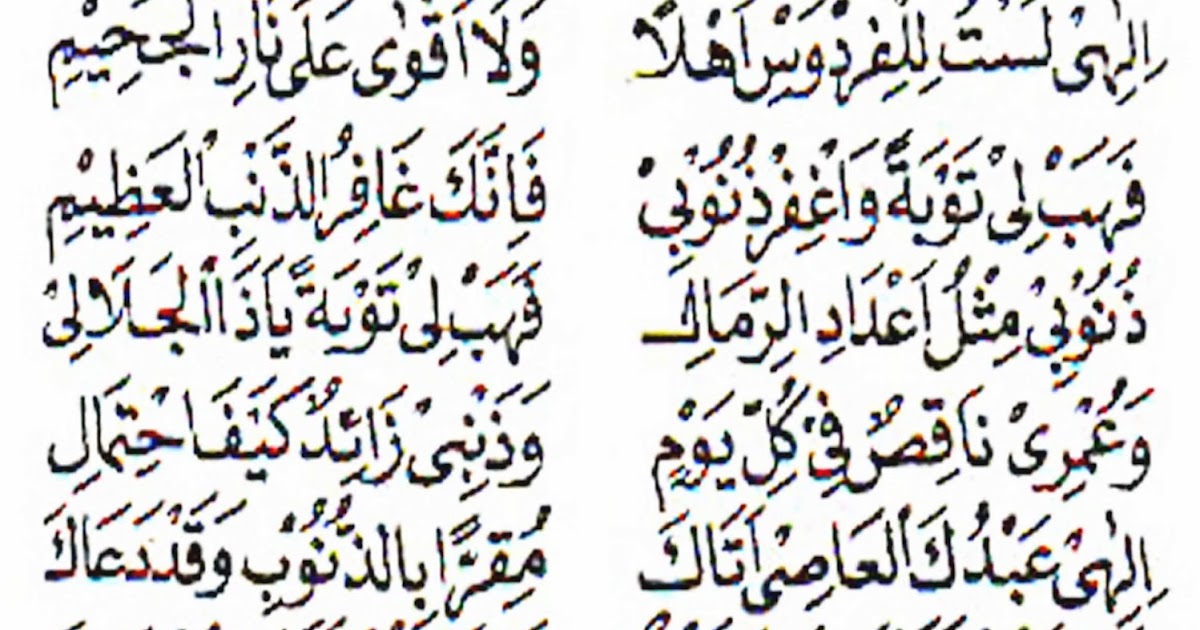 اِلٰهِىْ لَسْتُ لِلْفِرْدَوْسِ اَهْلًا وَلَا اَقْوٰى عَلَى نَارِ الْجَحِيْمِ
فَهَبْ لِىْ تَوْبَةً وَاغْفِرْ ذُنُوْبِىْ فَاِنَّكَ غَافِرُ الذَّنْبِ الْعَظِيْمِ
ذُنُوْبِىْ مِثْلُ اَعْدَادِ الرِّمَالِ فَهَبْ لِىْ تَوْبَةً يَاذَا الْجَلَالِىْ
وَعُمْرِىْ نَاقِصٌ فِىْ كُلِّ يَوْمٍ وَذَنْبِىْ زَائِدٌ كَيْفَ احْتِمَالِ
اِلٰهِىْ عَبْدُكَ الْعَاصِىْ اَتَاكَ مُقِرًّا بِالذُّنُوْبِ وَقَدْ دَعَاكَ